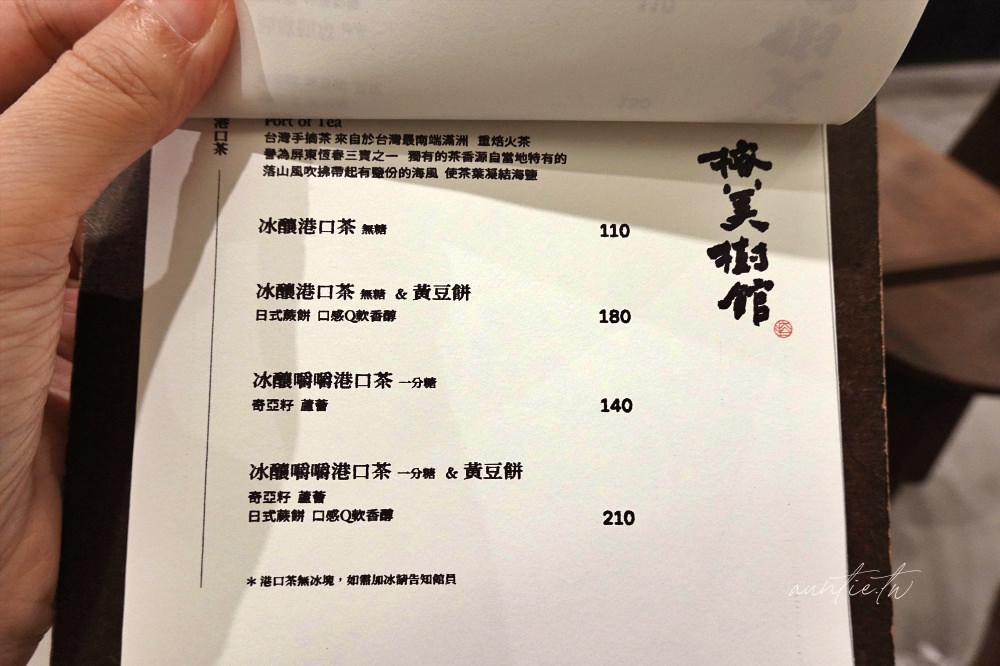 港口茶
Port of Tea
台灣手摘茶 來自於台灣最南端滿洲 重焙火茶
譽為屏東恆春三寶之一 獨有的茶香源自當地特有的
落山風吹拂帶起有鹽份的海風 使茶葉凝結海鹽
冰釀港口茶 無糖 110
冰釀港口茶 無糖 & 黃豆餅
日式蕨餅 口感Q軟香醇 180
冰釀嚼嚼港口茶 一分糖
奇亞籽 蘆薈 140
冰釀嚼嚼港口茶 一分糖 & 黃豆餅
奇亞籽 蘆薈
日式蕨餅 口感Q軟香醇 210
＊港口茶無冰塊，如需加冰請告知館員
美樹館
auntie.tw